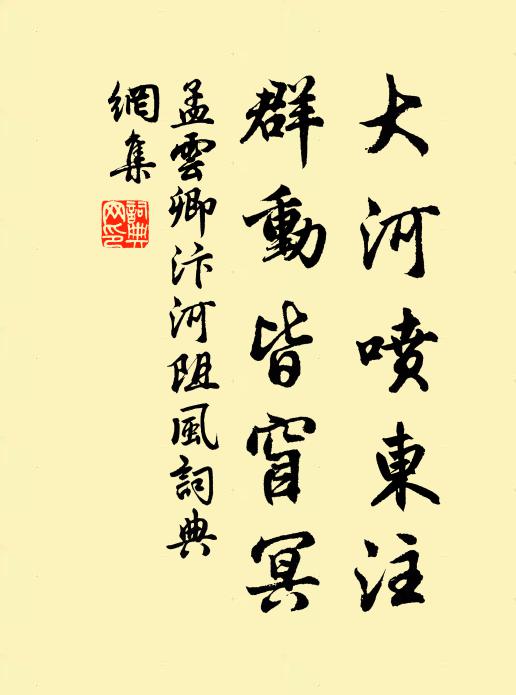 大河噴東注
群動皆窅冥
孟雲卿汴河阻風詞典
網集
詞典
网印